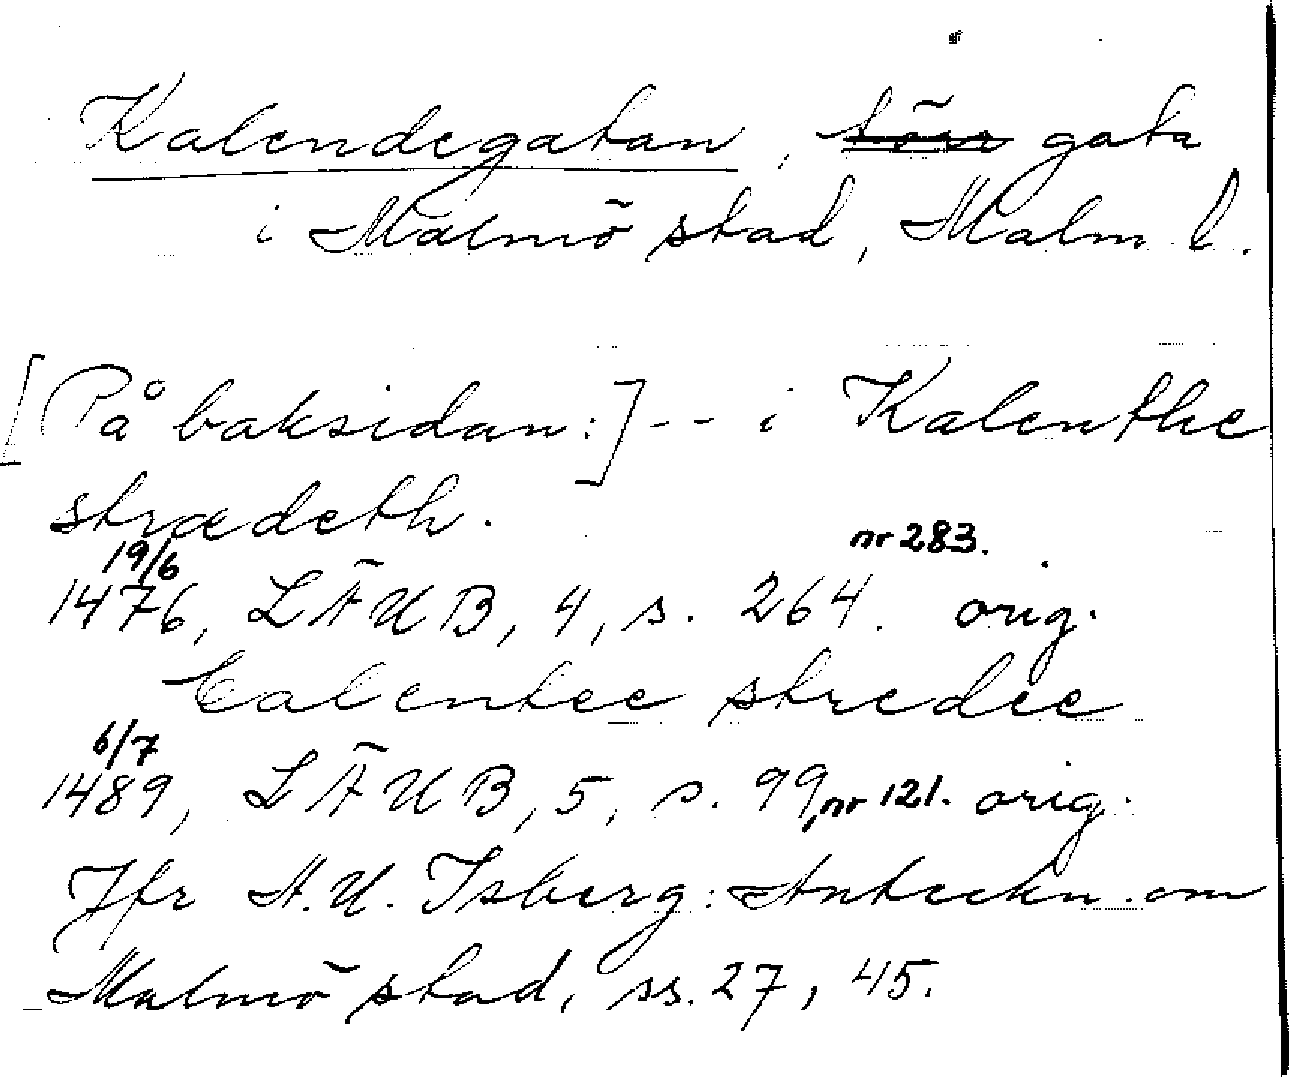 Kalendegatan, gata
i Malmö stad, Malm. l.
[På baksidan:] -- i Kalenthe
strædeth.
nr 283.
19/6
1476, LÄUB, 4, s. 264. orig.
Calentee stredee
6/7
1489, LÄUB, 5, s. 99, nr 121. orig.
Jfr A.U. Isberg: Anteckn. om
Malmö stad, ss. 27, 45.